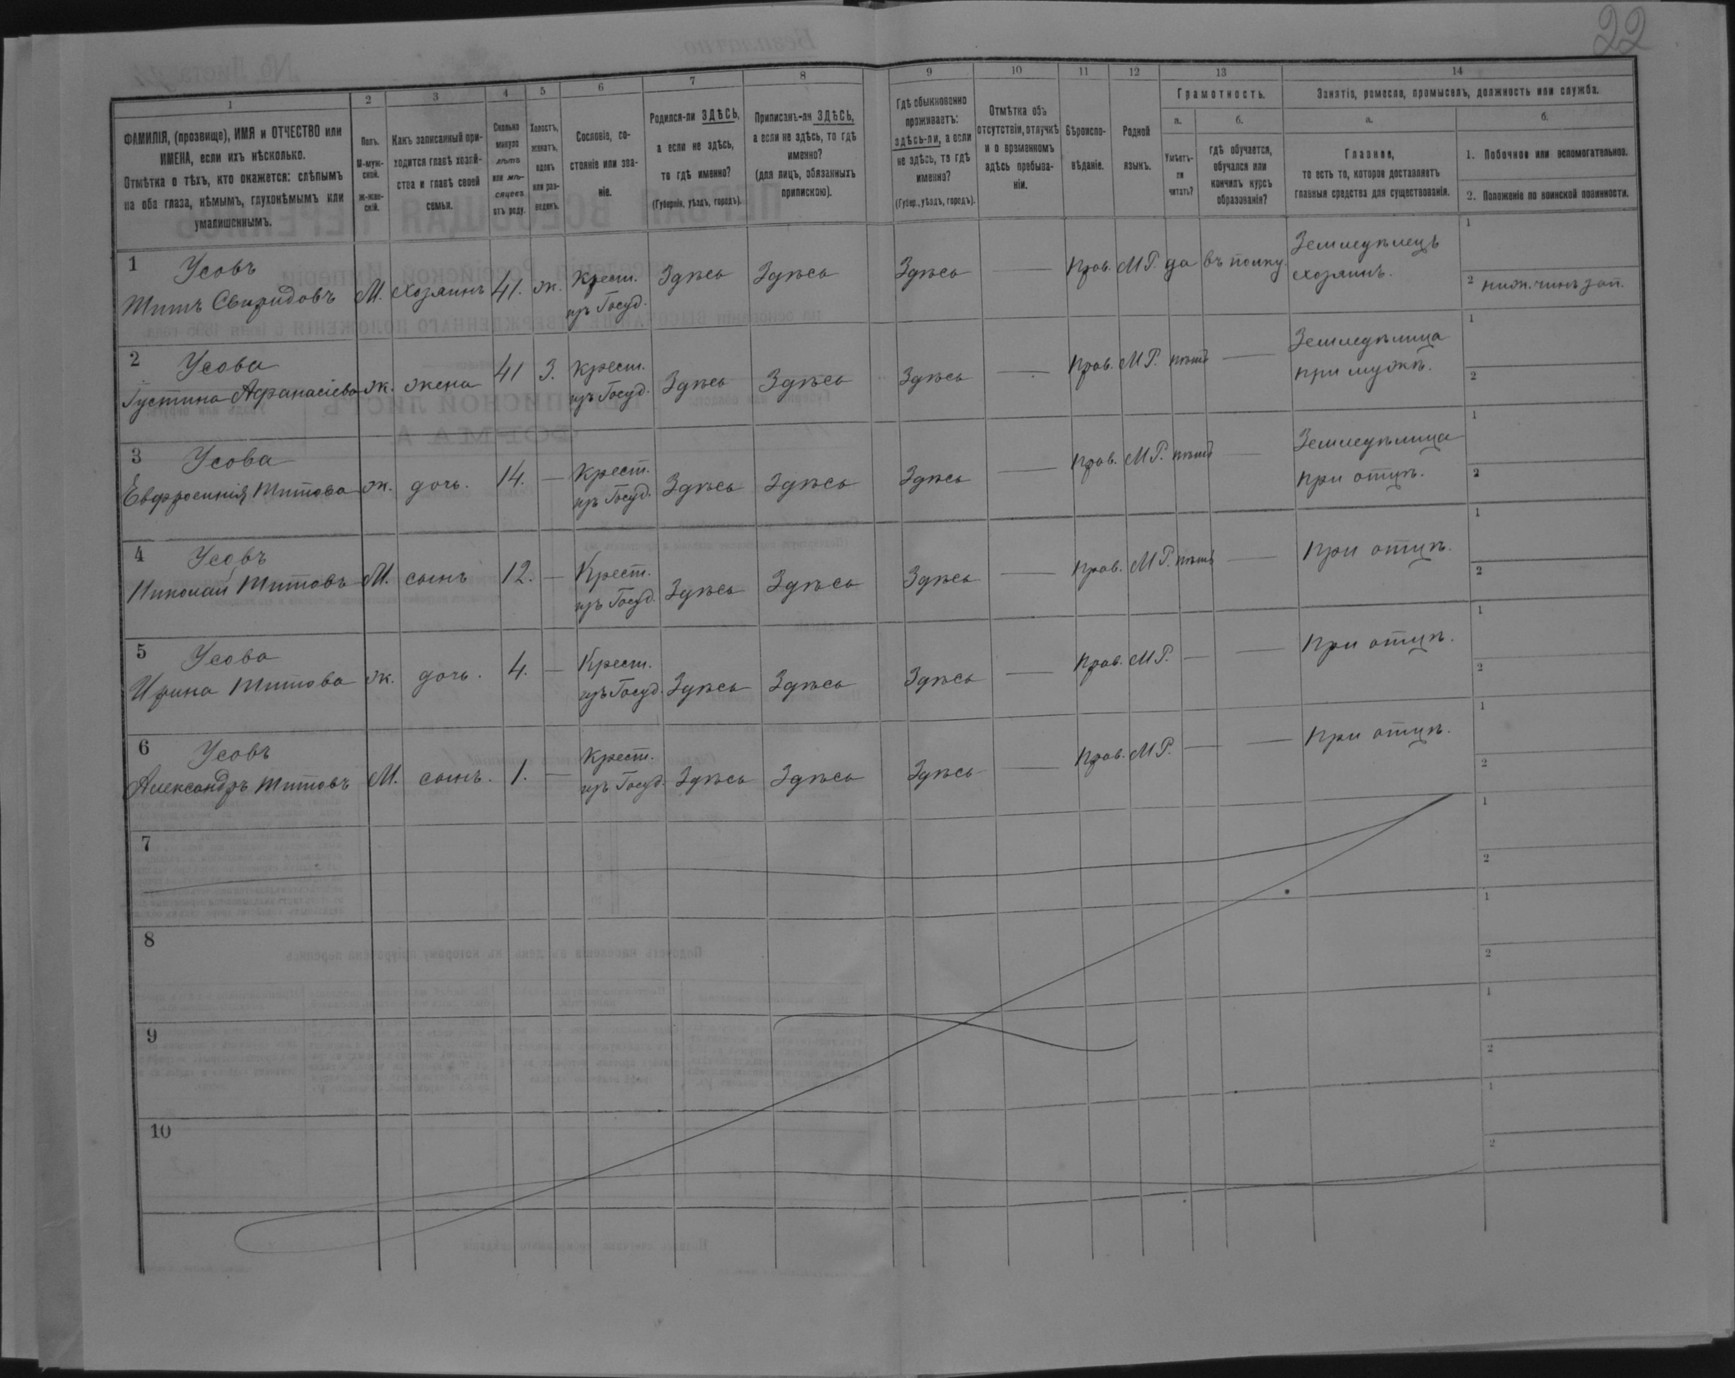 22
1 2 3 4 5 6 7 8 9 10 11 12 13 14
ФАМИЛІЯ, (прозвище), ИМЯ и ОТЧЕСТВО или
ИМЕНА, если ихъ нѣсколько.
Отмѣтка о тѣхъ, кто окажется: слѣпымъ
на оба глаза, нѣмымъ, глухонѣмымъ или
умалишеннымъ.
Полъ.
М-муж-
ской.
Ж-жен-
скій.
Какъ записанный при-
ходится главѣ хозяй-
ства и главѣ своей
семьи.
Сколько
минуло
лѣтъ
или мѣ-
сяцевъ
отъ роду.
Холостъ,
женатъ,
вдовъ
или раз-
веденъ.
Сословіе, со-
стояніе или зва-
ніе.
Родился-ли ЗДѢСЬ,
а если не здѣсь,
то гдѣ именно?
(Губернія, уѣздъ, городъ).
Приписанъ-ли ЗДѢСЬ,
а если не здѣсь, то гдѣ
именно?
(для лицъ, обязанныхъ
припискою).
Гдѣ обыкновенно
проживаетъ:
здѣсь-ли, а если
не здѣсь, то гдѣ
именно?
(Губер., уѣздъ, городъ).
Отмѣтка объ
отсутствіи, отлучкѣ
и о временномъ
здѣсь пребыва-
ніи.
Вѣроиспо-
вѣданіе.
Родной
языкъ.
Грамотность.
а.
Умѣетъ-
ли
читать?
б.
гдѣ обучается,
обучался или
кончилъ курсъ
образованія?
Занятіе, ремесло, промыселъ, должность или служба.
а.
Главное,
то есть то, которое доставляетъ
главныя средства для существованія.
б.
1. Побочное или вспомогательное.
2. Положеніе по воинской повинности.
1 Усовъ
Титъ Свиридовъ М. хозяинъ 41. ж. Крест. изъ Госуд. Здѣсь Здѣсь Здѣсь — Прав. М.Р. да въ полку Земледѣлецъ хозяинъ.
1
2 нижн. чинъ зап.
2 Усова
Густина Афанасіева ж. жена 41 З. Крест. изъ Госуд. Здѣсь Здѣсь Здѣсь — Прав. М.Р. нѣтъ — Земледѣлица при мужѣ.
1
2
3 Усова
Евфросинія Титова ж. дочь. 14. — Крест. изъ Госуд. Здѣсь Здѣсь Здѣсь — Прав. М.Р. нѣтъ — Земледѣлица при отцѣ.
1
2
4 Усовъ
Николай Титовъ М. сынъ 12. — Крест. изъ Госуд. Здѣсь Здѣсь Здѣсь — Прав. М.Р. нѣтъ — При отцѣ.
1
2
5 Усова
Ирина Титова ж. дочь. 4. — Крест. изъ Госуд. Здѣсь Здѣсь Здѣсь — Прав. М.Р. — — При отцѣ.
1
2
6 Усовъ
Александръ Титовъ М. сынъ. 1. — Крест. изъ Госуд. Здѣсь Здѣсь Здѣсь — Прав. М.Р. — — При отцѣ.
1
2
7
1
2
8
1
2
9
1
2
10
1
2